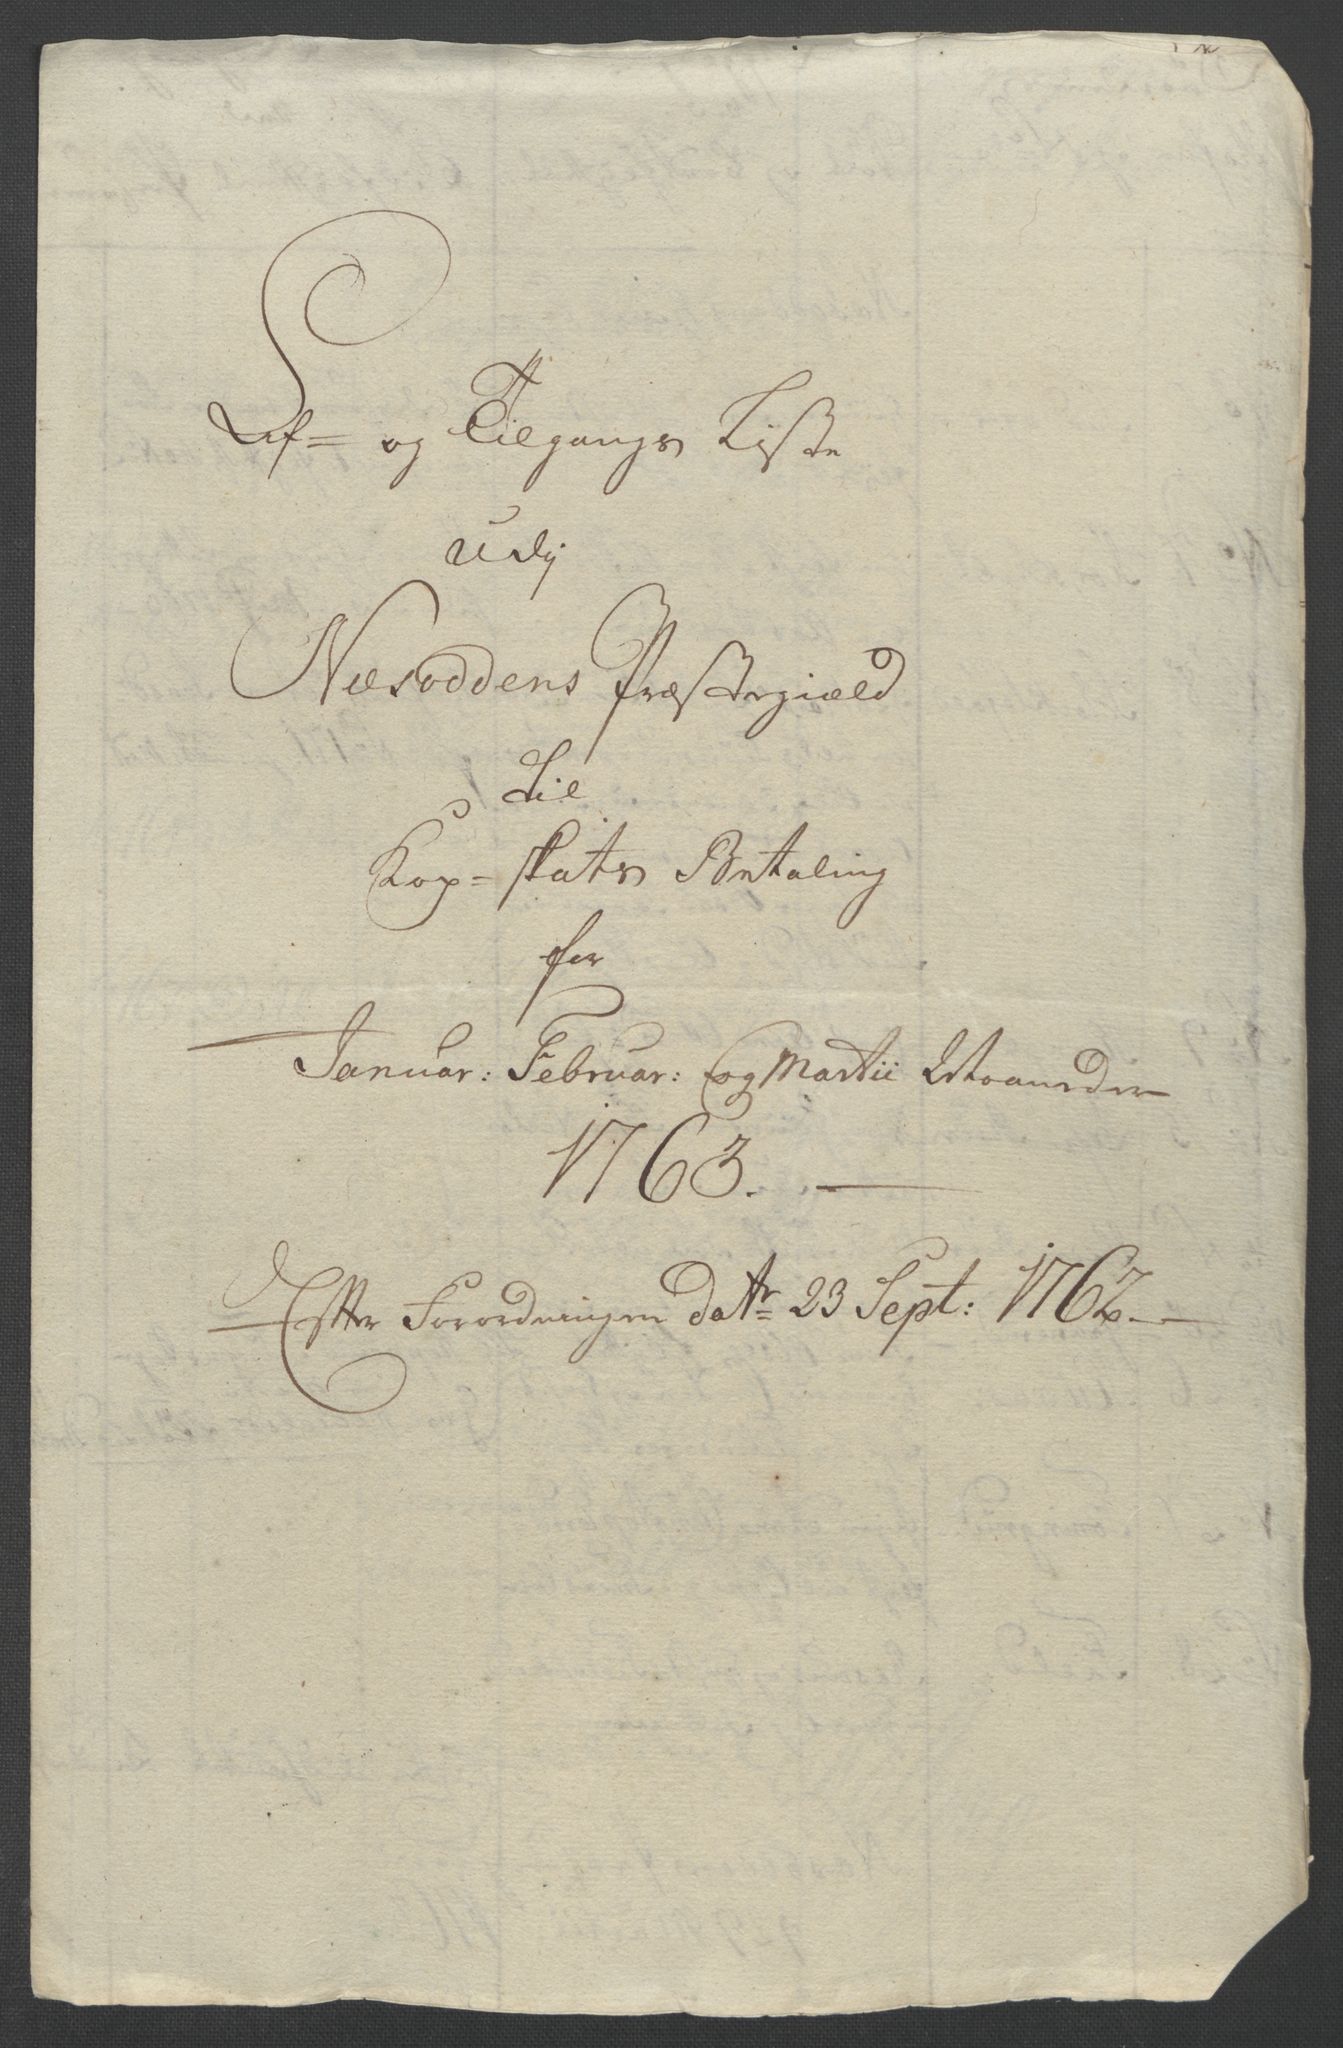 Af= og Tilgangs Liste
udj
Næsoddens Præstegiæld
til
Kop=skats Betaling
for
Januar: Februar: og Martii Maaneder
1763.
Efter Forordningen datr 23 Sept: 1762.